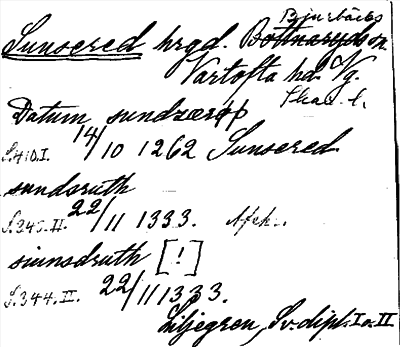 Bjurbäcks
Sunsered hrgd. Bottnaryds sn.
Vartofta hd. Vg.
Skar. l.
Datum sundzærøp
S.410.I. 14/10 1262 Sunsered
sundsruth
S.343.II. 22/11 1333.
siunsdruth [!]
S.344.II. 22/11 1333.
Liljegren, Sv. dipl. I o. II